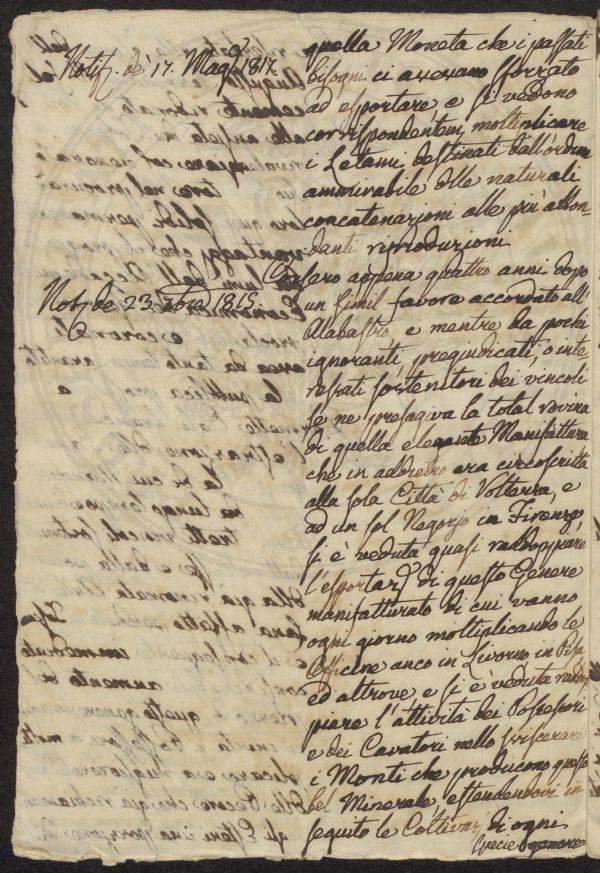 Notif. de' 17. Magg.º 1817.
Notif. de 23. xbre 1815.
quella Moneta che i passati
bisogni ci avevano sforzato
ad esportare, e si vedono
corrispondentem. moltiplicare
i Letami destinati dall'ordine
ammirabile delle naturali
concatenazioni alle più abbon-
danti riproduzioni
Corsero appena quattro anni dopo
un simil favore accordato all'
Alabastro, e mentre da pochi
ignoranti, pregiudicati, o inte-
ressati sostenitori dei vincoli
se ne presagiva la total rovina
di quella elegante Manifattura
che in addietro era circoscritta
alla sola Città di Volterra, e
ad un sol Negozio in Firenze,
si è veduta quasi raddoppiare
l'esportaz. di questo Genere
manifatturato di cui vanno
ogni giorno moltiplicando le
Officine anco in Livorno in Pisa
ed altrove, e si è veduta raddop-
piare l'attività dei Possessori
e dei Cavatori nello sviscerare
i Monti che producono questo
bel Minerale, estendendosi in
seguito le Coltivaz. di ogni
specie